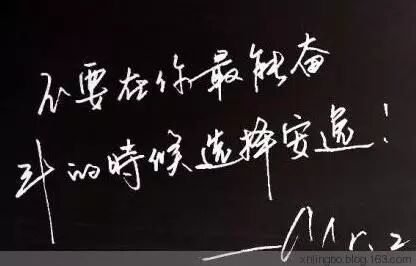 不要在你最能奋
斗的時候选择安逸！
xnlingbo.blog.163.com